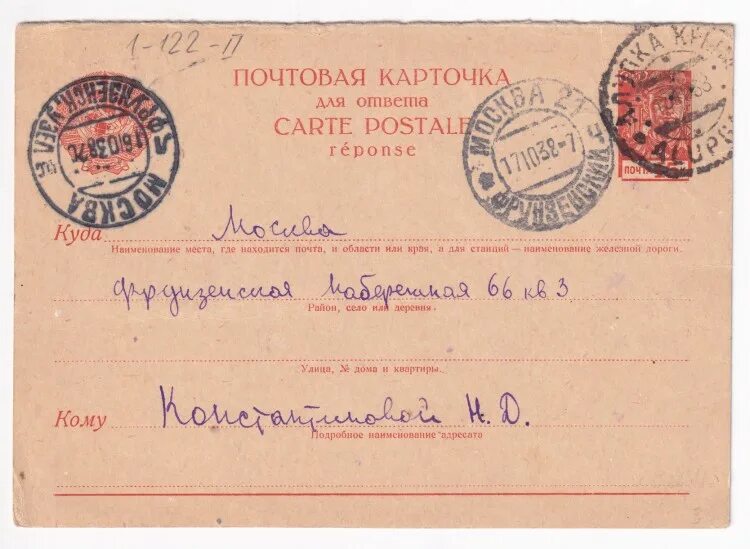 1-122-П
ПОЧТОВАЯ КАРТОЧКА
для ответа
CARTE POSTALE
réponse
МОСКВА
16.10.38
МОСКВА 21
17.10.38-7
ФРУНЗЕНСКИЙ
АЛУПКА КРЫМ
ALUPK
ПОЧТА
Куда Москва
Наименование места, где находится почта, и области или края, а для станций—наименование железной дороги.
Фрунзенская набережная 66 кв 3
Район, село или деревня.
Улица, № дома и квартиры.
Кому Константиновой Н. Д.
Подробное наименование адресата